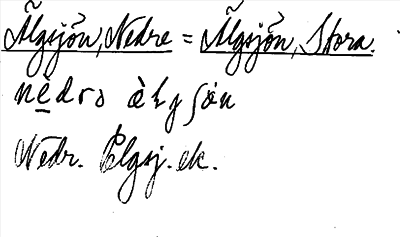 Älgsjön, Nedre = Älgsjön, Stora.
nèdrɔ ælgʃön
Nedr. Elgsj. ek.